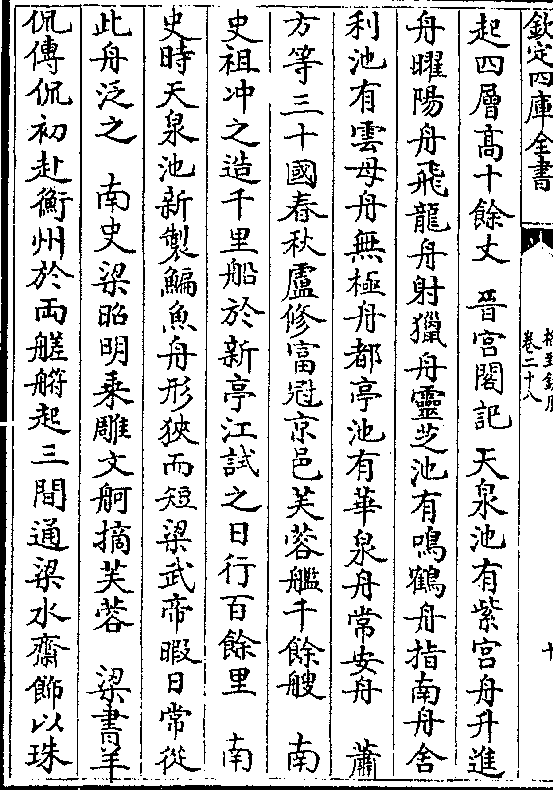 欽定四庫全書
卷二十八
起四層高十餘丈　晉宮閣記　天泉池有紫宮舟升進
舟曜陽舟飛龍舟射獵舟靈芝池有鳴鶴舟指南舟舎
利池有雲母舟無極舟都亭池有華泉舟常安舟　蕭
方等三十國春秋盧修富冠京邑芙蓉艦千餘艘　南
史祖冲之造千里船於新亭江試之日行百餘里　南
史時天泉池新製鯿魚舟形狹而短梁武帝暇日常從
此舟泛之　南史梁昭明乗雕文舸摘芙蓉　梁書羊
侃傳侃初赴衡州於两艖䑰起三間通梁水齋飾以珠